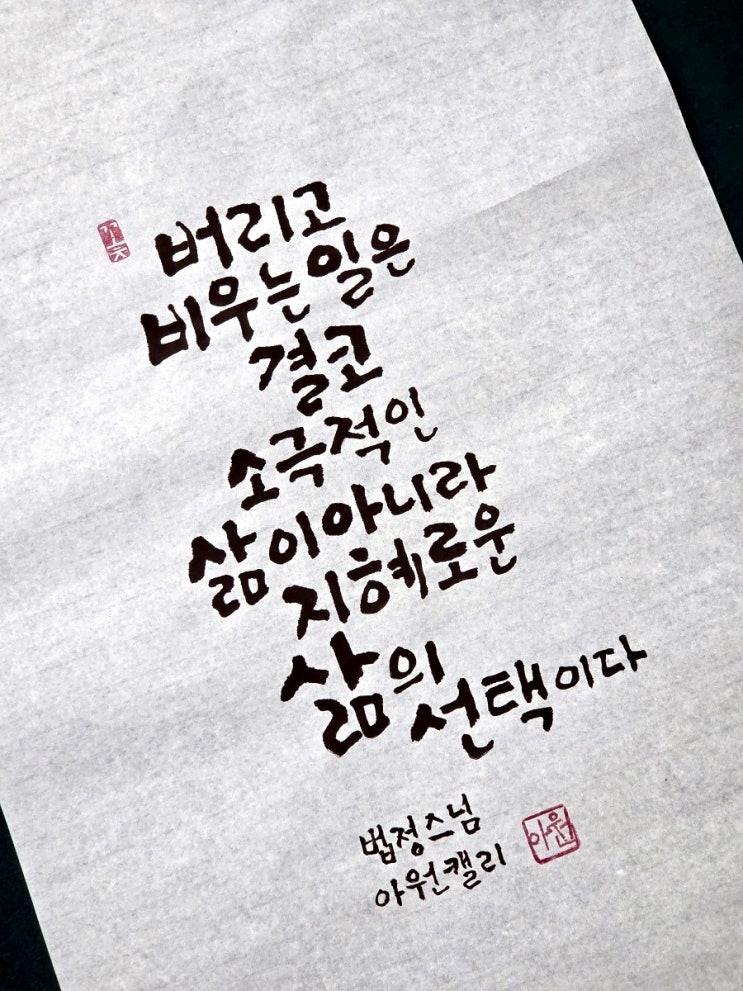 꽃
버리고
비우는 일은
결코
소극적인
삶이 아니라
지혜로운
삶의 선택이다
법정스님
아원캘리
아원